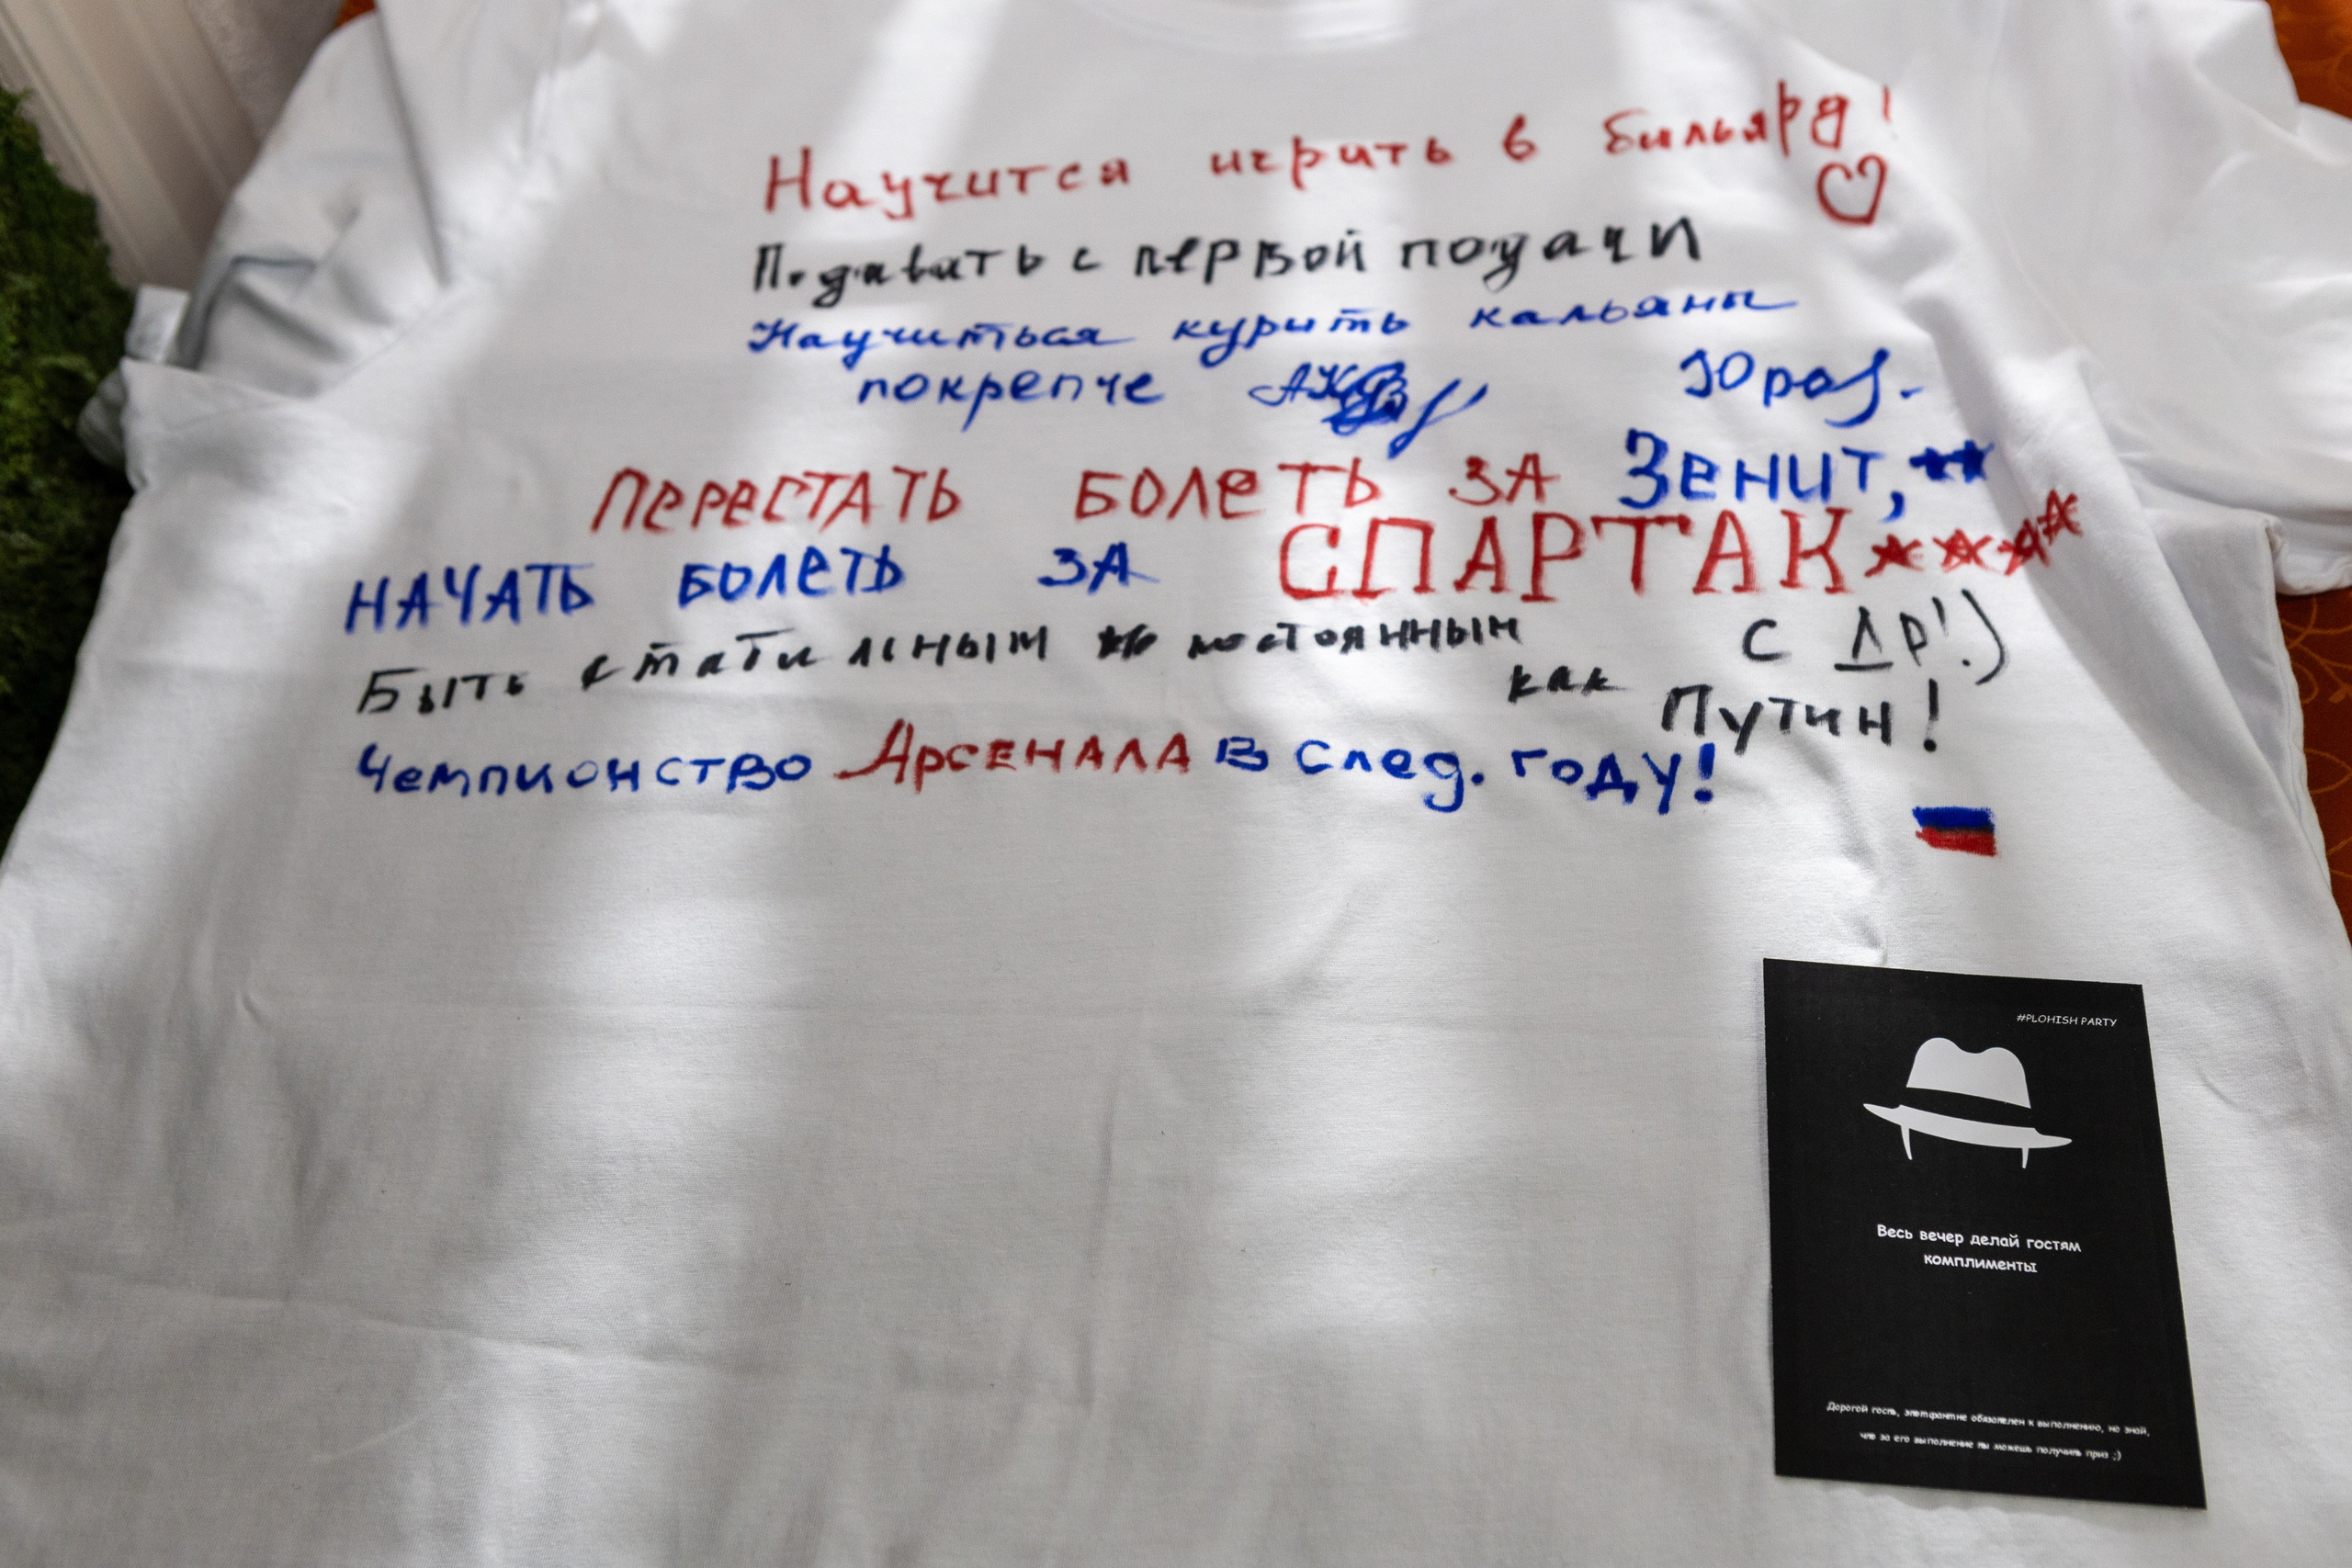 Научится играть в бильярд!
с первой подачи
Научиться курить кальяны
покрепче
Юра
ПЕРЕСТАТЬ БОЛЕТЬ ЗА ЗЕНИТ,
НАЧАТЬ БОЛЕТЬ ЗА СПАРТАК
Быть постоянным
С ДР!)
как Путин!
Чемпионство АРСЕНАЛА в след. году!
#PLOHISH PARTY
Весь вечер делай гостям
комплименты
Дорогой гость, этот фант не обязателен к выполнению, но знай,
что за его выполнение ты можешь получить приз ;)